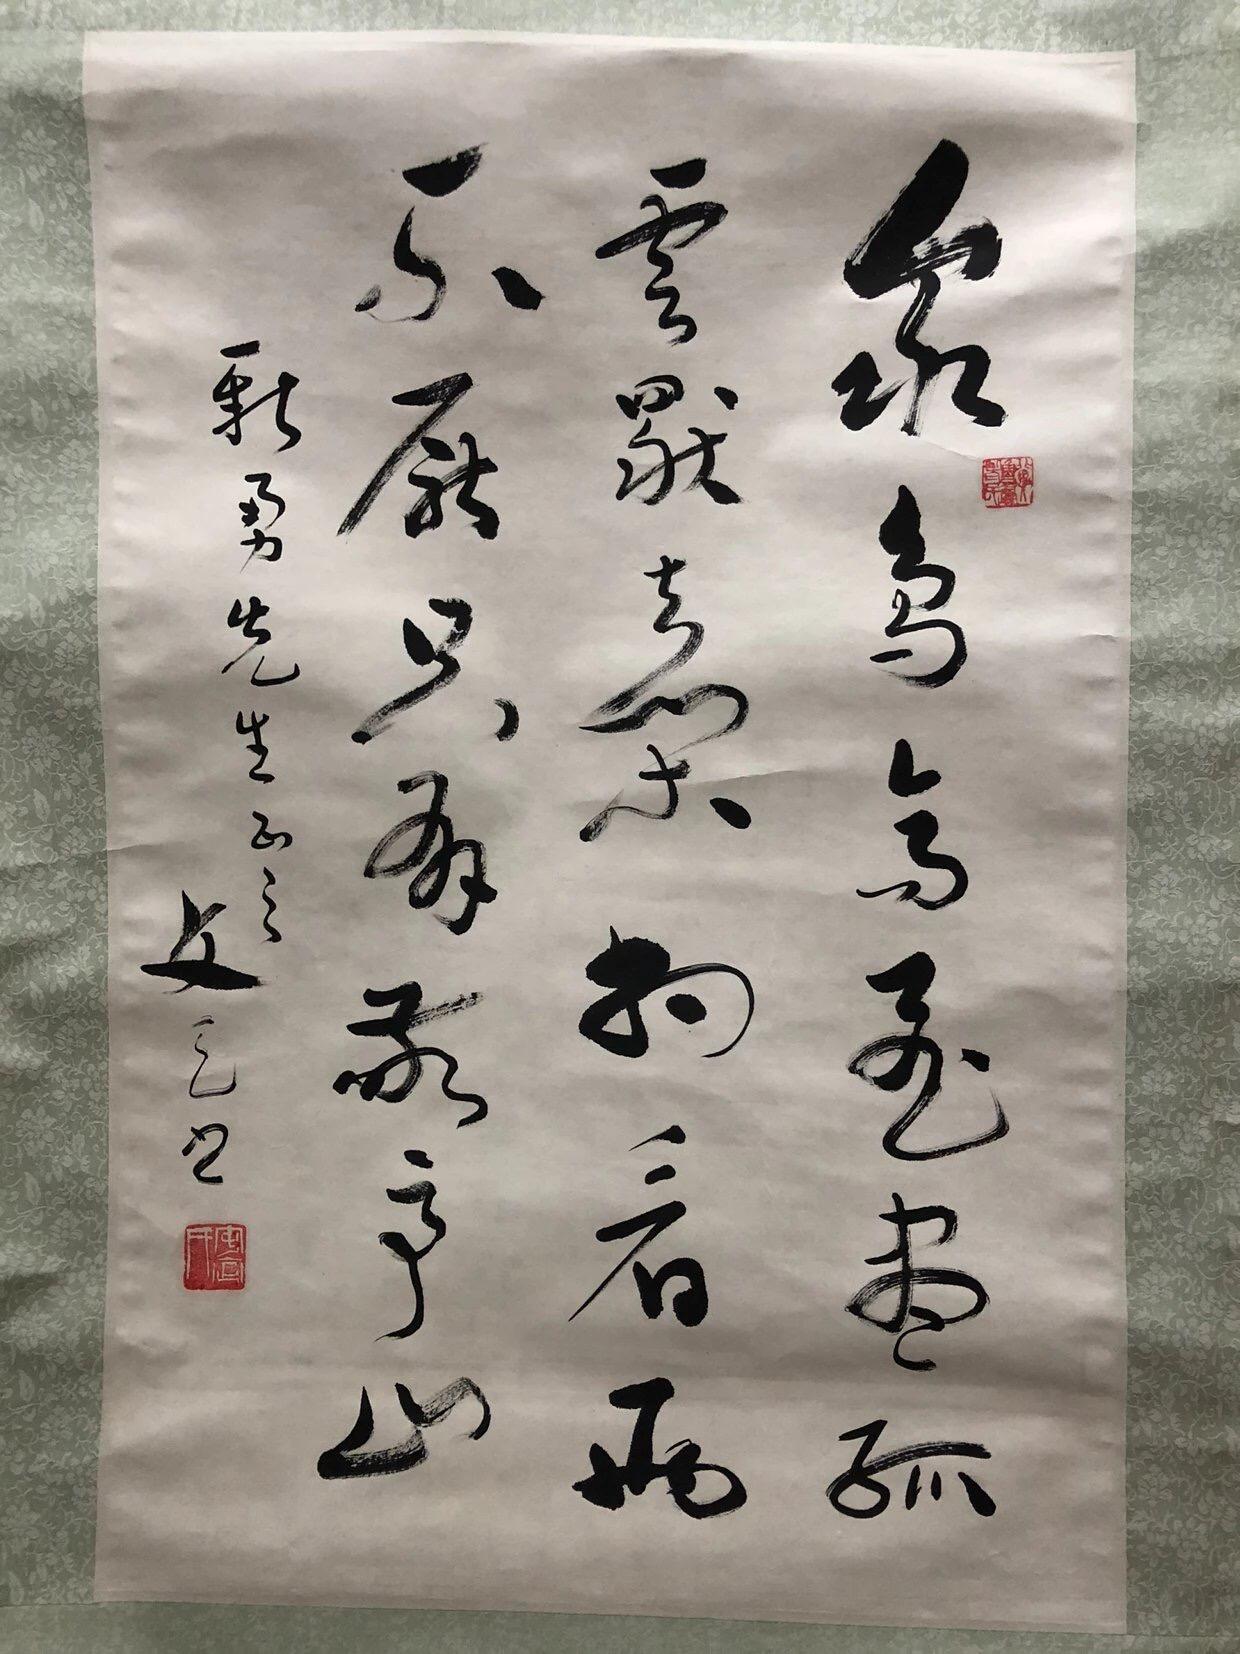 眾鳥高飛盡孤
雲獨去閑相看兩
不厭只有敬亭山
勇先生正之
文书